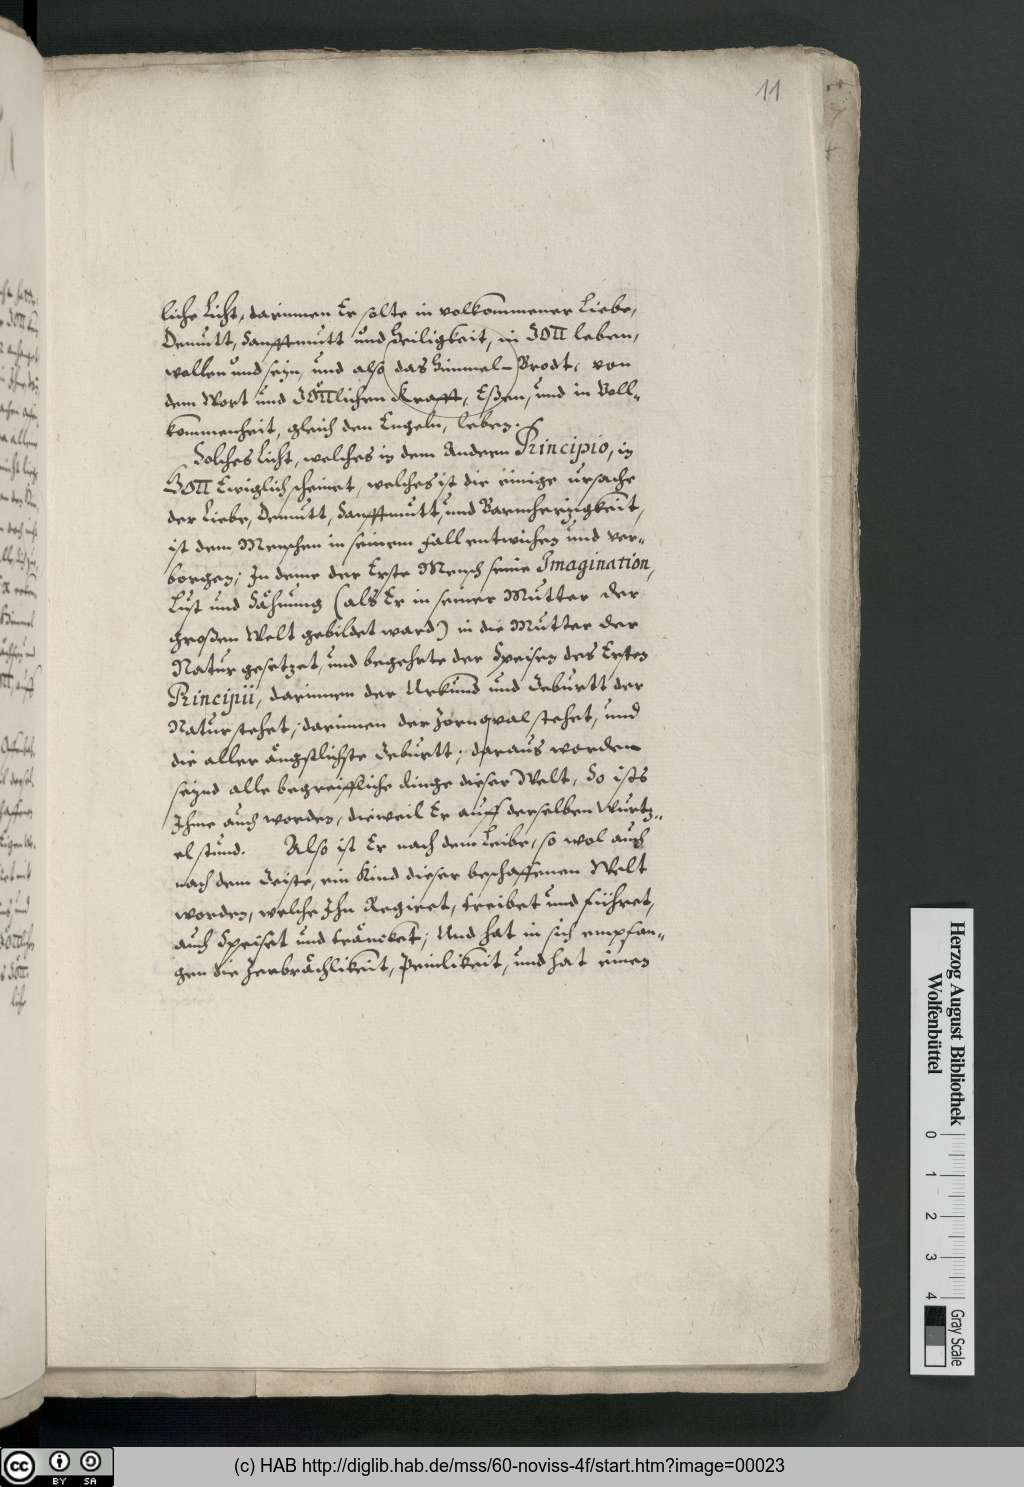 11
liche Licht, darinnen Er solte in volkommener Liebe,
Demutt, Sanfftmutt und Heiligkeit, in GOTT leben,
wallen und seyn, und also das Himmel-Brodt, von
dem Wort und GÖTTlichen Krafft, Eßen, und in Voll-
kommenheit, gleich den Engeln, leben.
Solches Licht, welches in dem Andern Principio, in
GOTT Ewiglich scheinet, welches ist die einige ursache
der Liebe, Demutt, Sanfftmutt, und Barmhertzigkeit,
ist dem Menschen in seinem fall entwichen und ver-
borgen; In deme der Erste Mensch seine Imagination,
Lust und Sähnung (als Er in seiner Mutter der
großen Welt gebildet ward) in die Mutter der
Natur gesetzet, und begehrte der Speisen des Ersten
Principii, darinnen der Urkund und Geburtt der
Natur stehet, darinnen der Zornqval stehet, und
die aller ängstlichste Geburtt; daraus worden
seynd alle begreiffliche dinge dieser Welt, So ists
Ihme auch worden, dieweil Er auff derselben Wurtz-
el stund. Also ist Er nach dem Leibe, so wol auch
nach dem Geiste, ein Kind dieser beschaffenen Welt
worden, welche Ihn Regiret, treibet und führet,
auch Speiset und träncket; Und hat in sich empfan-
gen die Zerbrächlikeit, Peinlikeit, und hat einen
Herzog August Bibliothek
Wolfenbüttel
0 1 2 3 4
Gray Scale
cc BY SA
(c) HAB http://diglib.hab.de/mss/60-noviss-4f/start.htm?image=00023